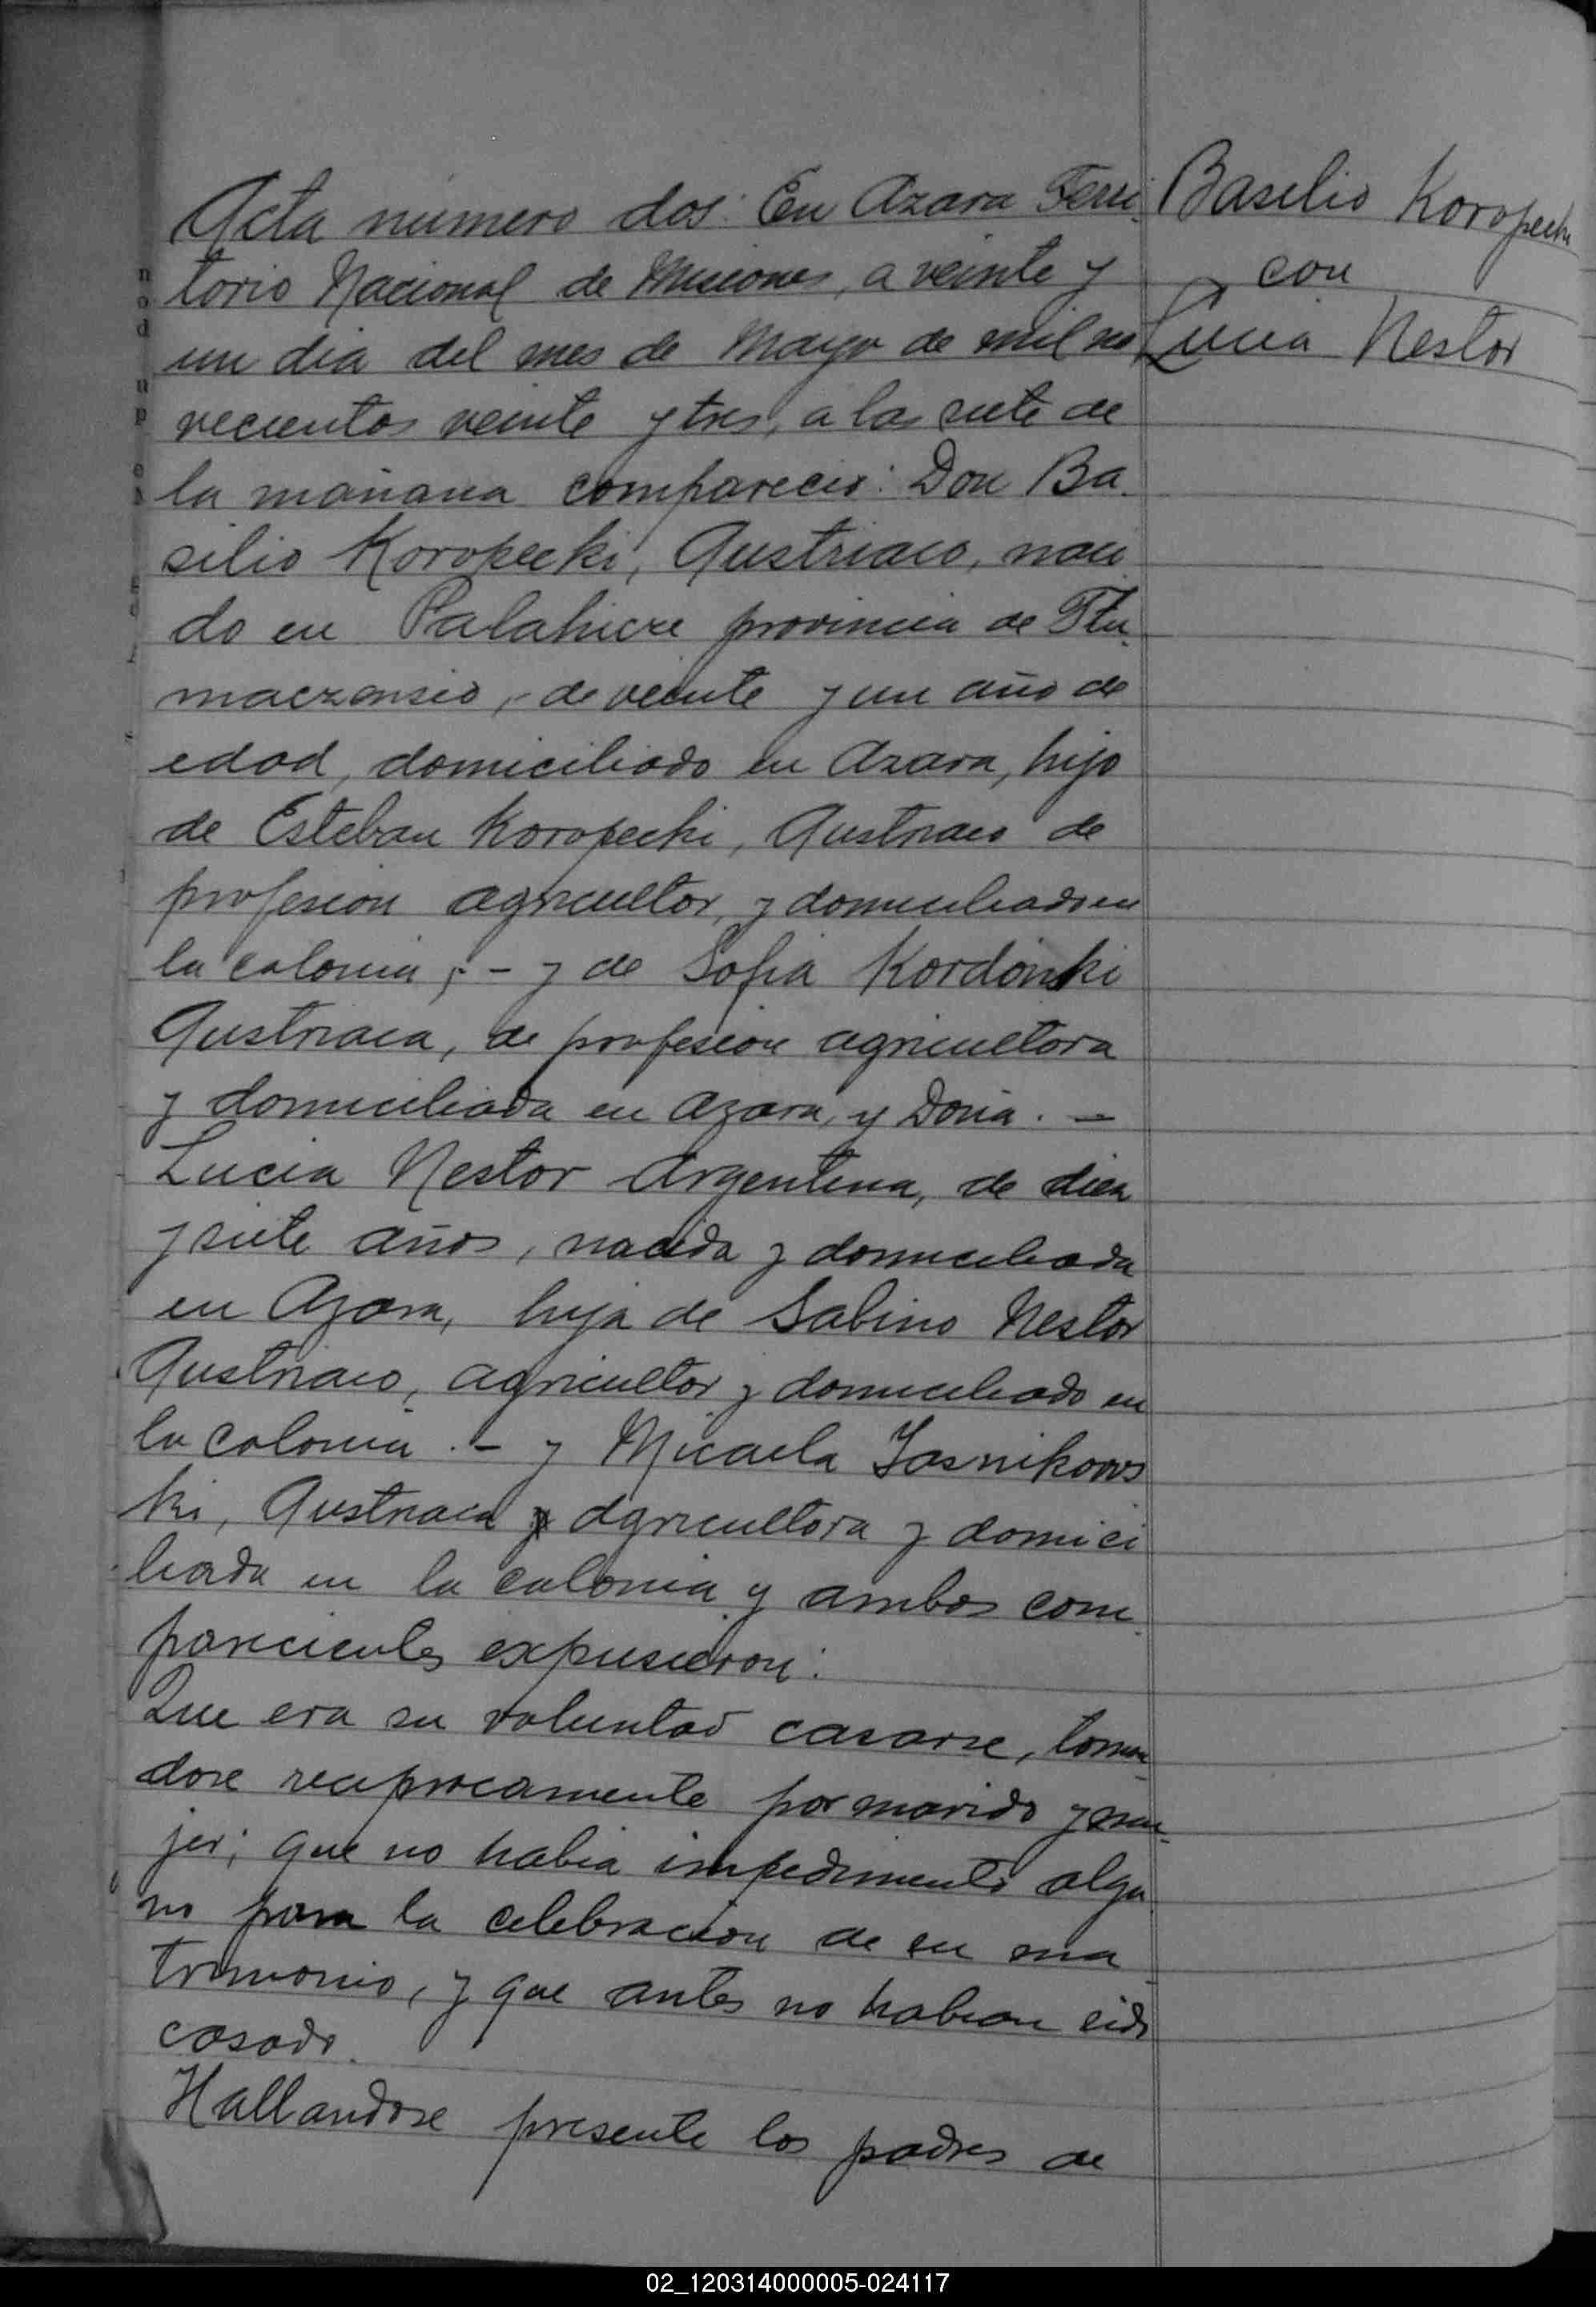 Acta numero dos: En Azara Terri
torio Nacional de Misiones, a veinte y
un dia del mes de Mayo de mil no
vecientos veinte y tres, a las siete de
la mañana comparecio: Don Ba.
silio Koropecki, Austriaco, naci
do en Palahicze provincia de Tlu.
maczensio, - de veinte y un año de
edad, domiciliado en Azara, hijo
de Esteban Koropecki, Austriaco de
profesion agricultor, y domiciliado en
la colonia; - y de Sofia Kordonski
Austriaca, de profesion agricultora
y domiciliada en Azara, y Doña. -
Lucia Nestor Argentina, de diez
y siete años, nacida y domiciliada
en Azara, hija de Sabino Nestor
Austriaco, agricultor y domiciliado en
la colonia. - y Micaela Jasnikows
ki, Austriaca agricultora y domici
liada en la colonia y ambos com.
parecientes expusieron:
Que era su voluntad casarse, toman
dose reciprocamente por marido y mu-
jer; que no habia impedimento algu
no para la celebracion de su ma
trimonio, y que antes no habian sido
casado.
Hallandose presente los padres de
Basilio Koropecki
con
Lucia Nestor
02_120314000005-024117